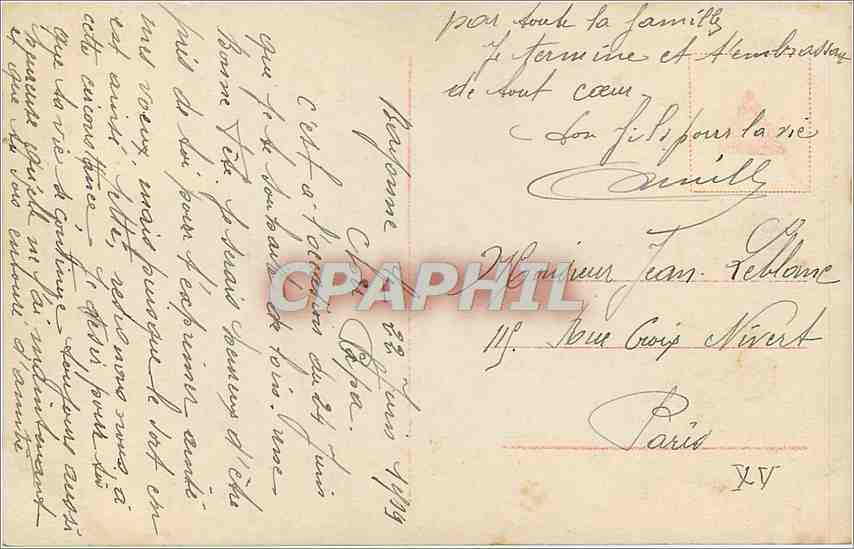 Bayonne 22 Juin 1939
Cher Papa.
C'est à l'occasion du 24 Juin
que je te souhaite de loin une
Bonne Fête. Je serais heureux d'être
près de toi pour t'exprimer
mes voeux, mais puisque le sort en
est ainsi jetté, resignons nous à
cette circonstance. Je desir pour toi
que ta vie se continue toujours aussi
heureuse qu'elle ne l'ai maintenant
et que tu sois entouré d'amitié
par toute la famille
Je termine et t'embrassan
de tout coeur
Ton fils pour la vie
Camille
Monsieur Jean Leblanc
115. Rue Croix Nivert
Paris
XV
CPAPHIL